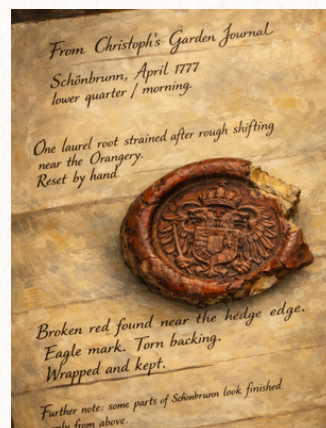 From Christoph's Garden Journal
Schönbrunn, April 1777
lower quarter / morning.
One laurel root strained after rough shifting
near the Orangery.
Reset by hand
Broken red found near the hedge edge.
Eagle mark. Torn backing.
Wrapped and kept.
Further note: some parts of Schonbrunn look finished
only from above.